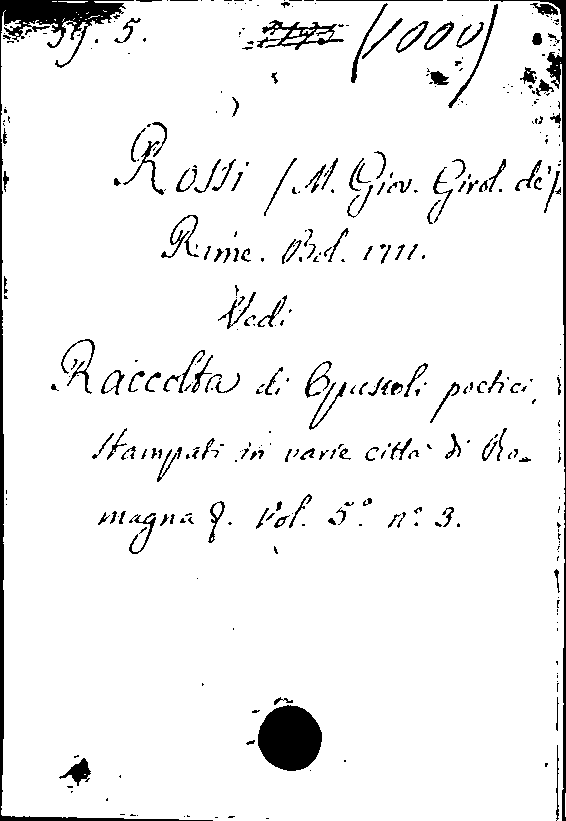 39. 5. (1000)
Rossi (M. Giov. Girol. de')
Rime. Bol. 1711.
Vedi
Raccolta di Opuscoli poetici,
stampati in varie città di Ro-
magna &. Vol. 5.º nº. 3.